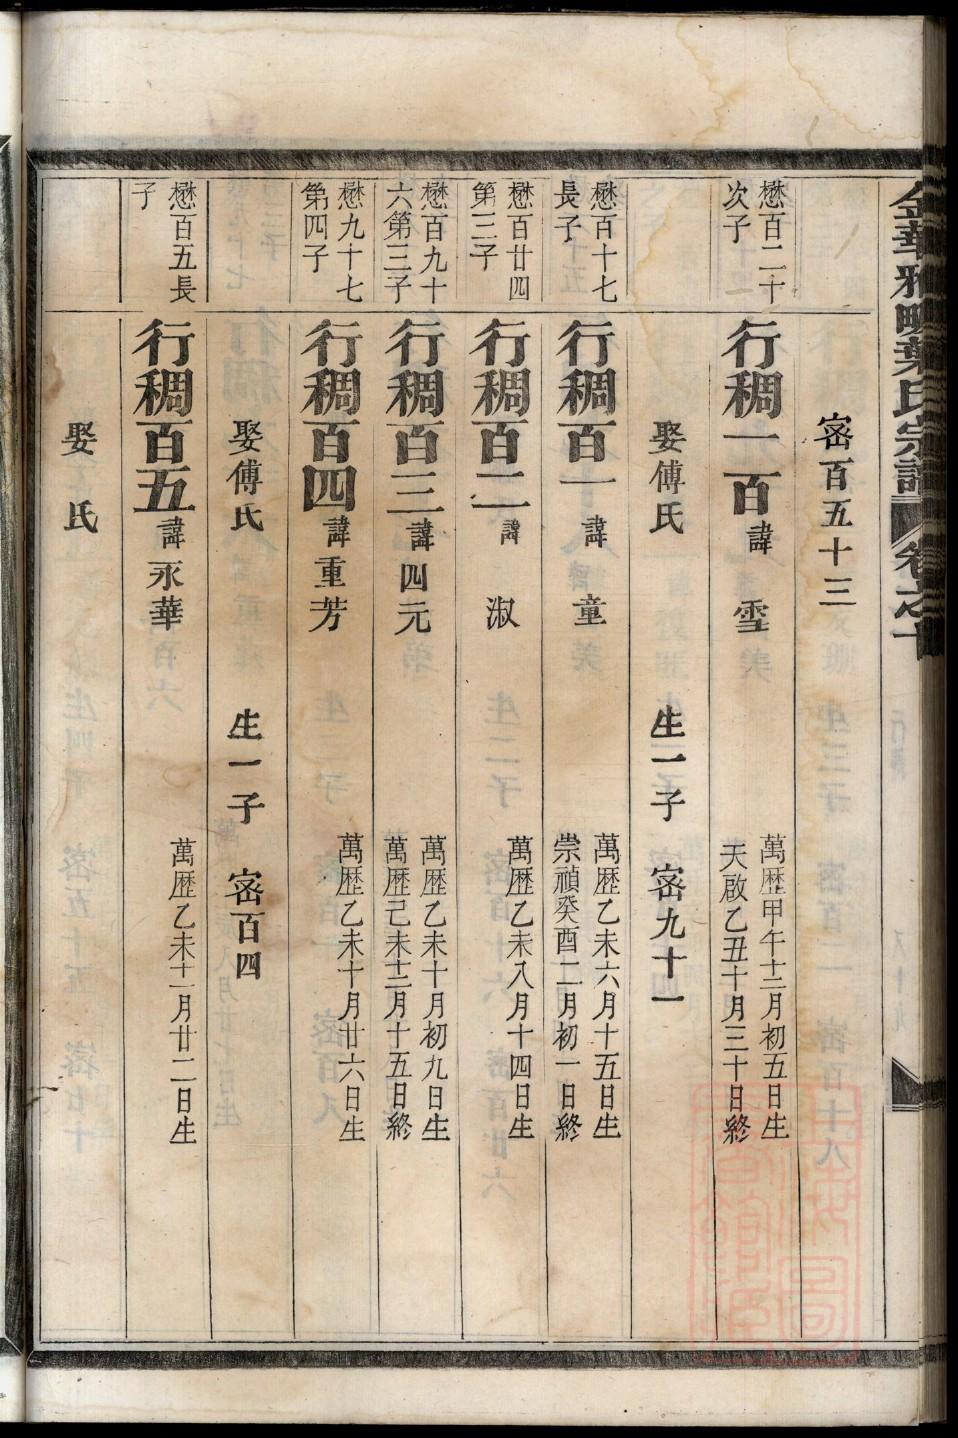 金華雅畈葉氏宗譜 卷之十
密百五十三
懋百二十次子
行稠一百 諱雪
萬歷甲午十二月初五日生
天啟乙丑十月三十日終
娶傅氏 生一子 密九十一
懋百十七長子
行稠百一 諱童
萬歷乙未六月十五日生
崇禎癸酉二月初一日終
懋百廿四第三子
行稠百二 諱淑
萬歷乙未八月十四日生
懋百九十六第三子
行稠百三 諱四元
萬歷乙未十月初九日生
萬歷己未十二月十五日終
懋九十七第四子
行稠百四 諱重芳
萬歷乙未十月廿六日生
娶傅氏 生一子 密百四
懋百五長子
行稠百五 諱永華
萬歷乙未十一月廿二日生
娶 氏